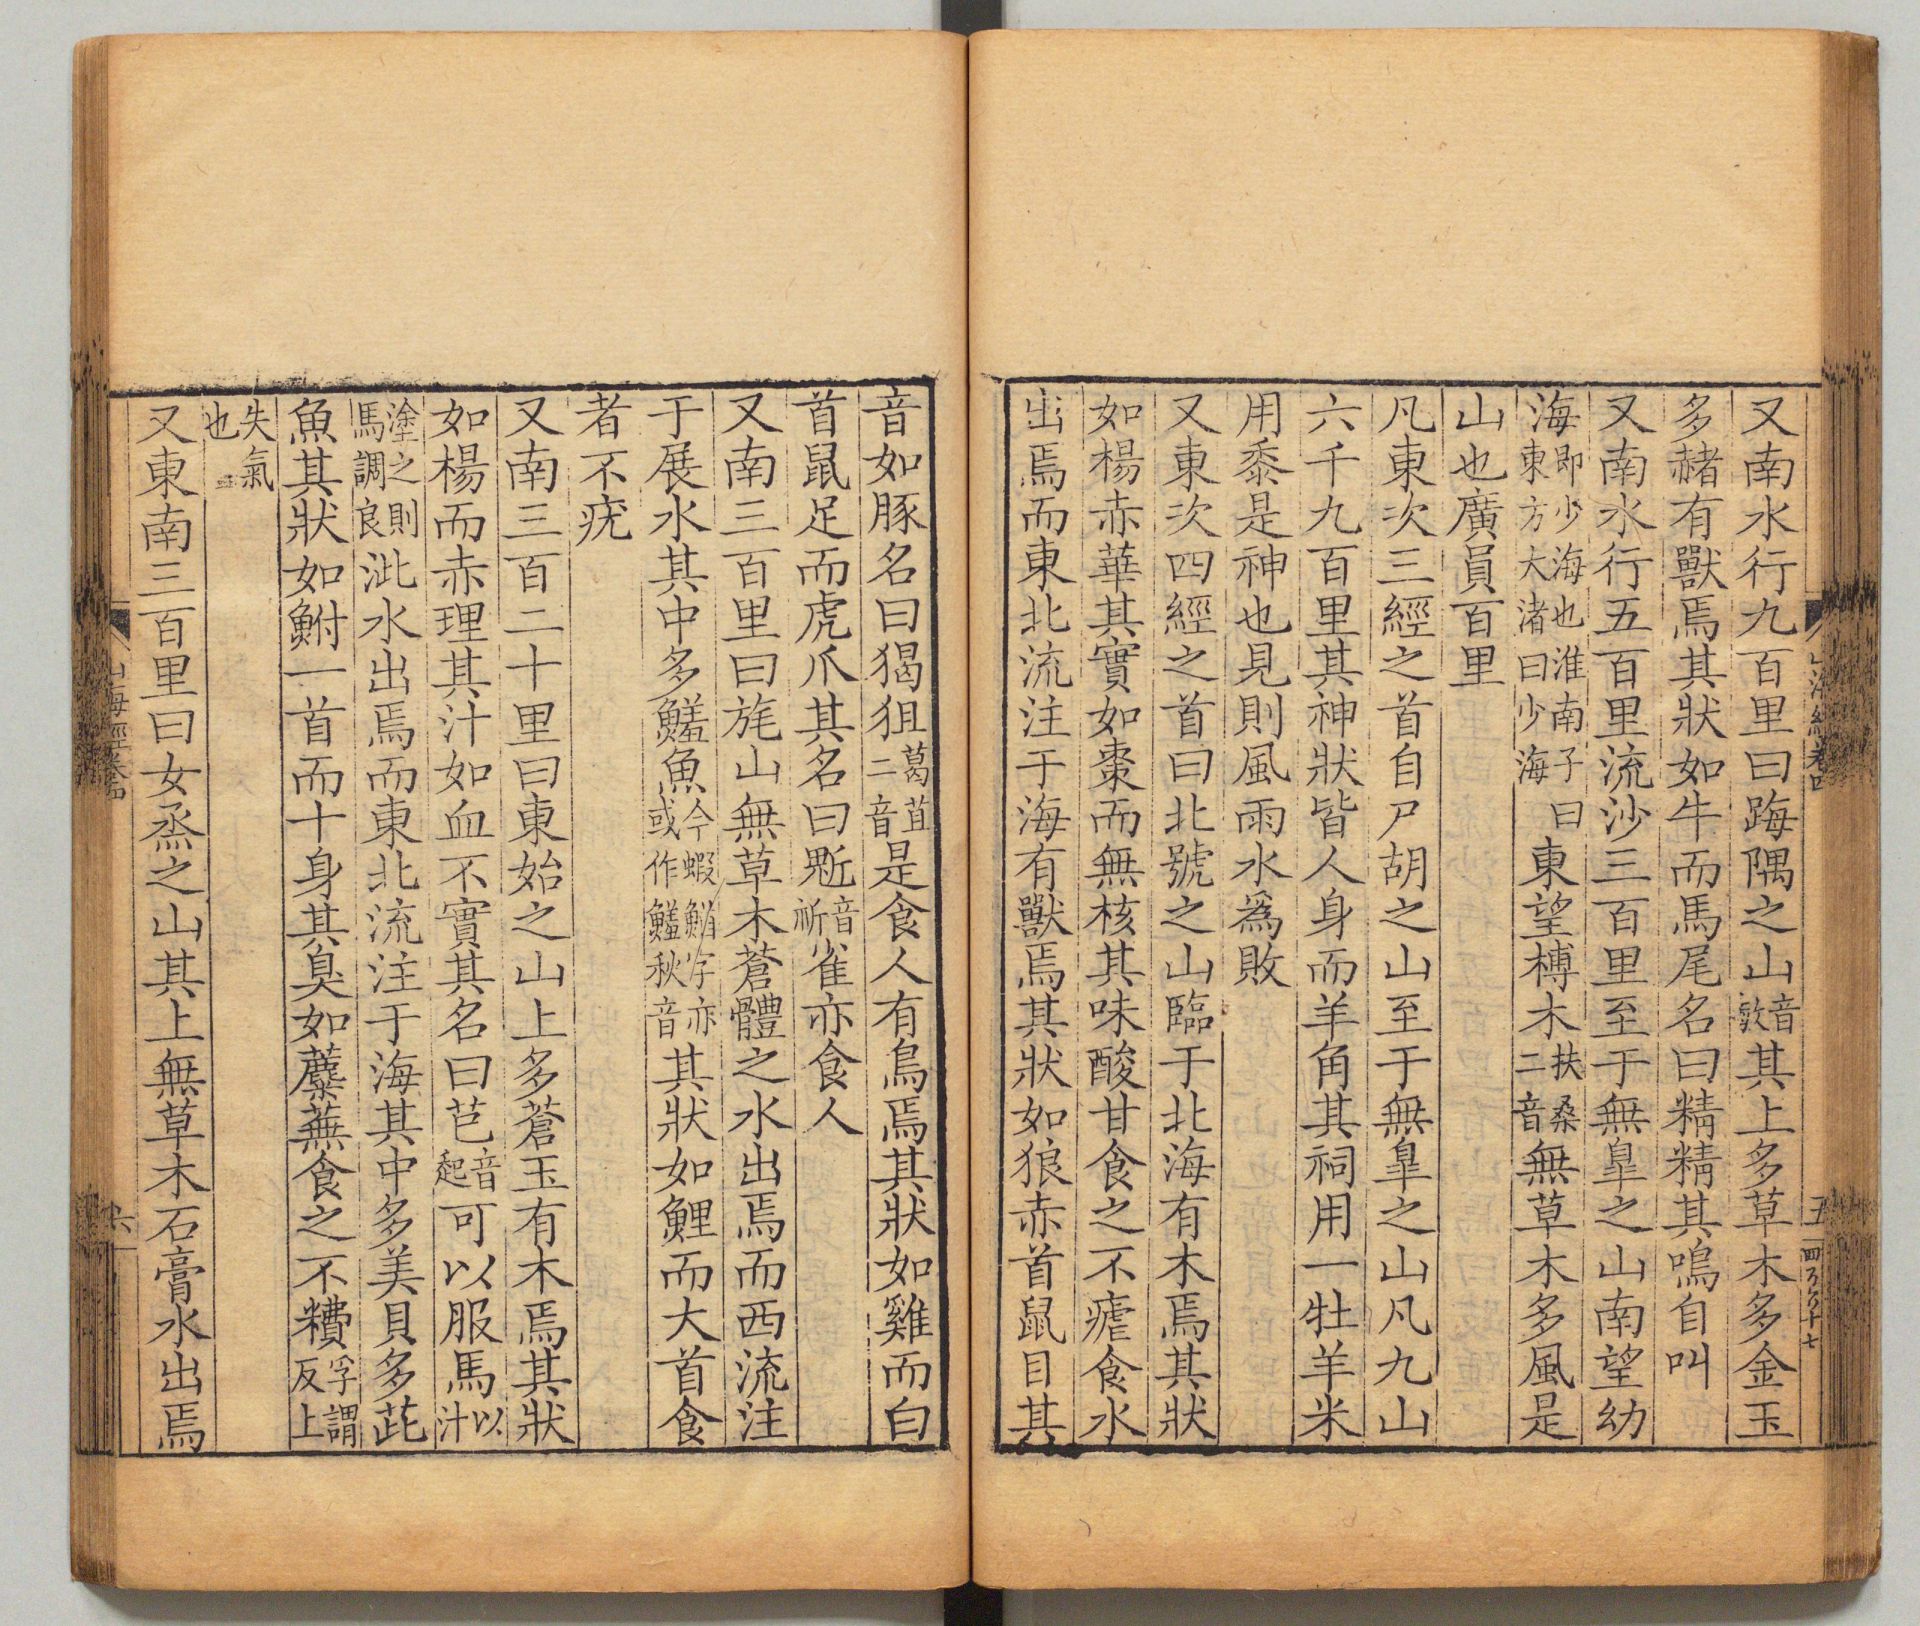 又南水行九百里曰踇隅之山音敏其上多草木多金玉
多赭有獸焉其狀如牛而馬尾名曰精精其鳴自叫
又南水行五百里流沙三百里至于無臯之山南望幼
海即少海也淮南子曰東方大渚曰少海東望榑木扶桑二音無草木多風是
山也廣員百里
凡東次三經之首自尸胡之山至于無臯之山凡九山
六千九百里其神狀皆人身而羊角其祠用一牡羊米
用黍是神也見則風雨水為敗
又東次四經之首曰北號之山臨于北海有木焉其狀
如楊赤華其實如棗而無核其味酸甘食之不瘧食水
出焉而東北流注于海有獸焉其狀如狼赤首鼠目其
音如豚名曰猲狙葛苴二音是食人有鳥焉其狀如雞而白
首鼠足而虎爪其名曰鬿音祈雀亦食人
又南三百里曰旄山無草木蒼體之水出焉而西流注
于展水其中多鱃魚今蝦䱬字亦或作鱃秋音其狀如鯉而大首食
者不疣
又南三百二十里曰東始之山上多蒼玉有木焉其狀
如楊而赤理其汁如血不實其名曰芑音起可以服馬以汁
塗之則馬調良泚水出焉而東北流注于海其中多美貝多茈
魚其狀如鮒一首而十身其臭如蘪蕪食之不𥽎孚謂反上
失氣也
又東南三百里曰女烝之山其上無草木石膏水出焉
山海經卷四
五
四百六十七
山海經卷四
六